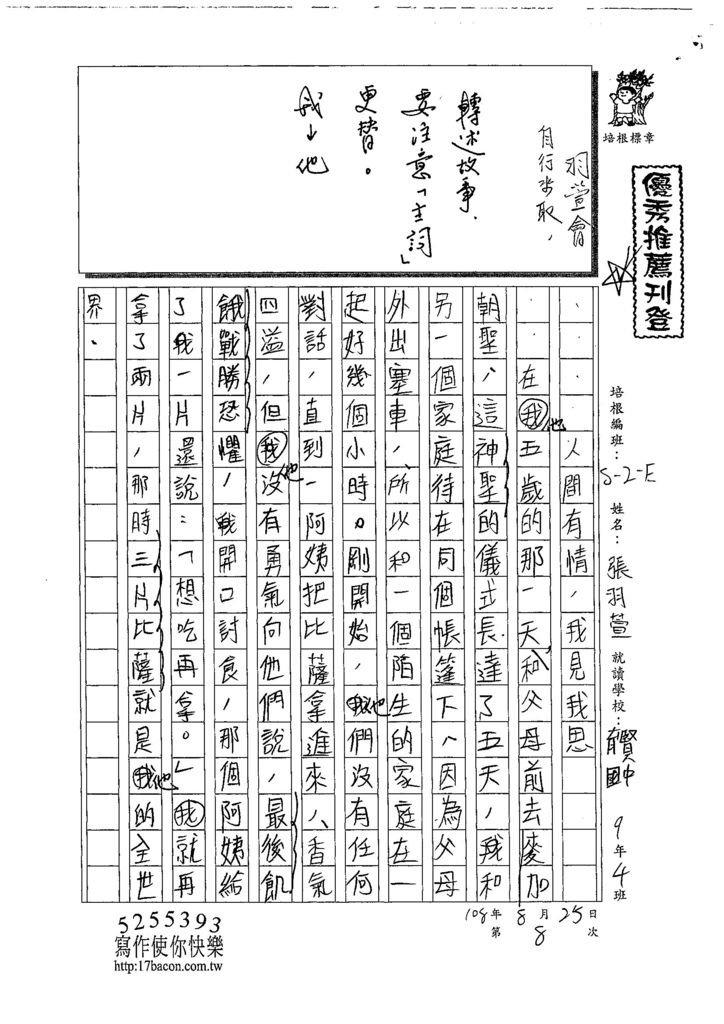 培根標章
優秀推薦刊登
羽萱會
自行步取,
轉述故事,
要注意「主詞」
更替。
我→他
培根編班:S-2-E 姓名:張羽萱 就讀學校: 國中 9年4班
人間有情,我見我思
在我五歲的那一天,和父母前去麥加
他
朝聖,這神聖的儀式長達了五天,我和
另一個家庭待在同個帳篷下,因為父母
外出塞車,所以和一個陌生的家庭在一
起好幾個小時。剛開始,我們沒有任何
他
對話,直到一阿姨把比薩拿進來,香氣
四溢,但我沒有勇氣向他們說,最後飢
他
餓戰勝恐懼,我開口討食,那個阿姨給
了我一片還說:「想吃再拿。」我就再
拿了兩片,那時三片比薩就是我的全世
他
界。
108年8月25日
第8次
5255393
寫作使你快樂
http:17bacon.com.tw